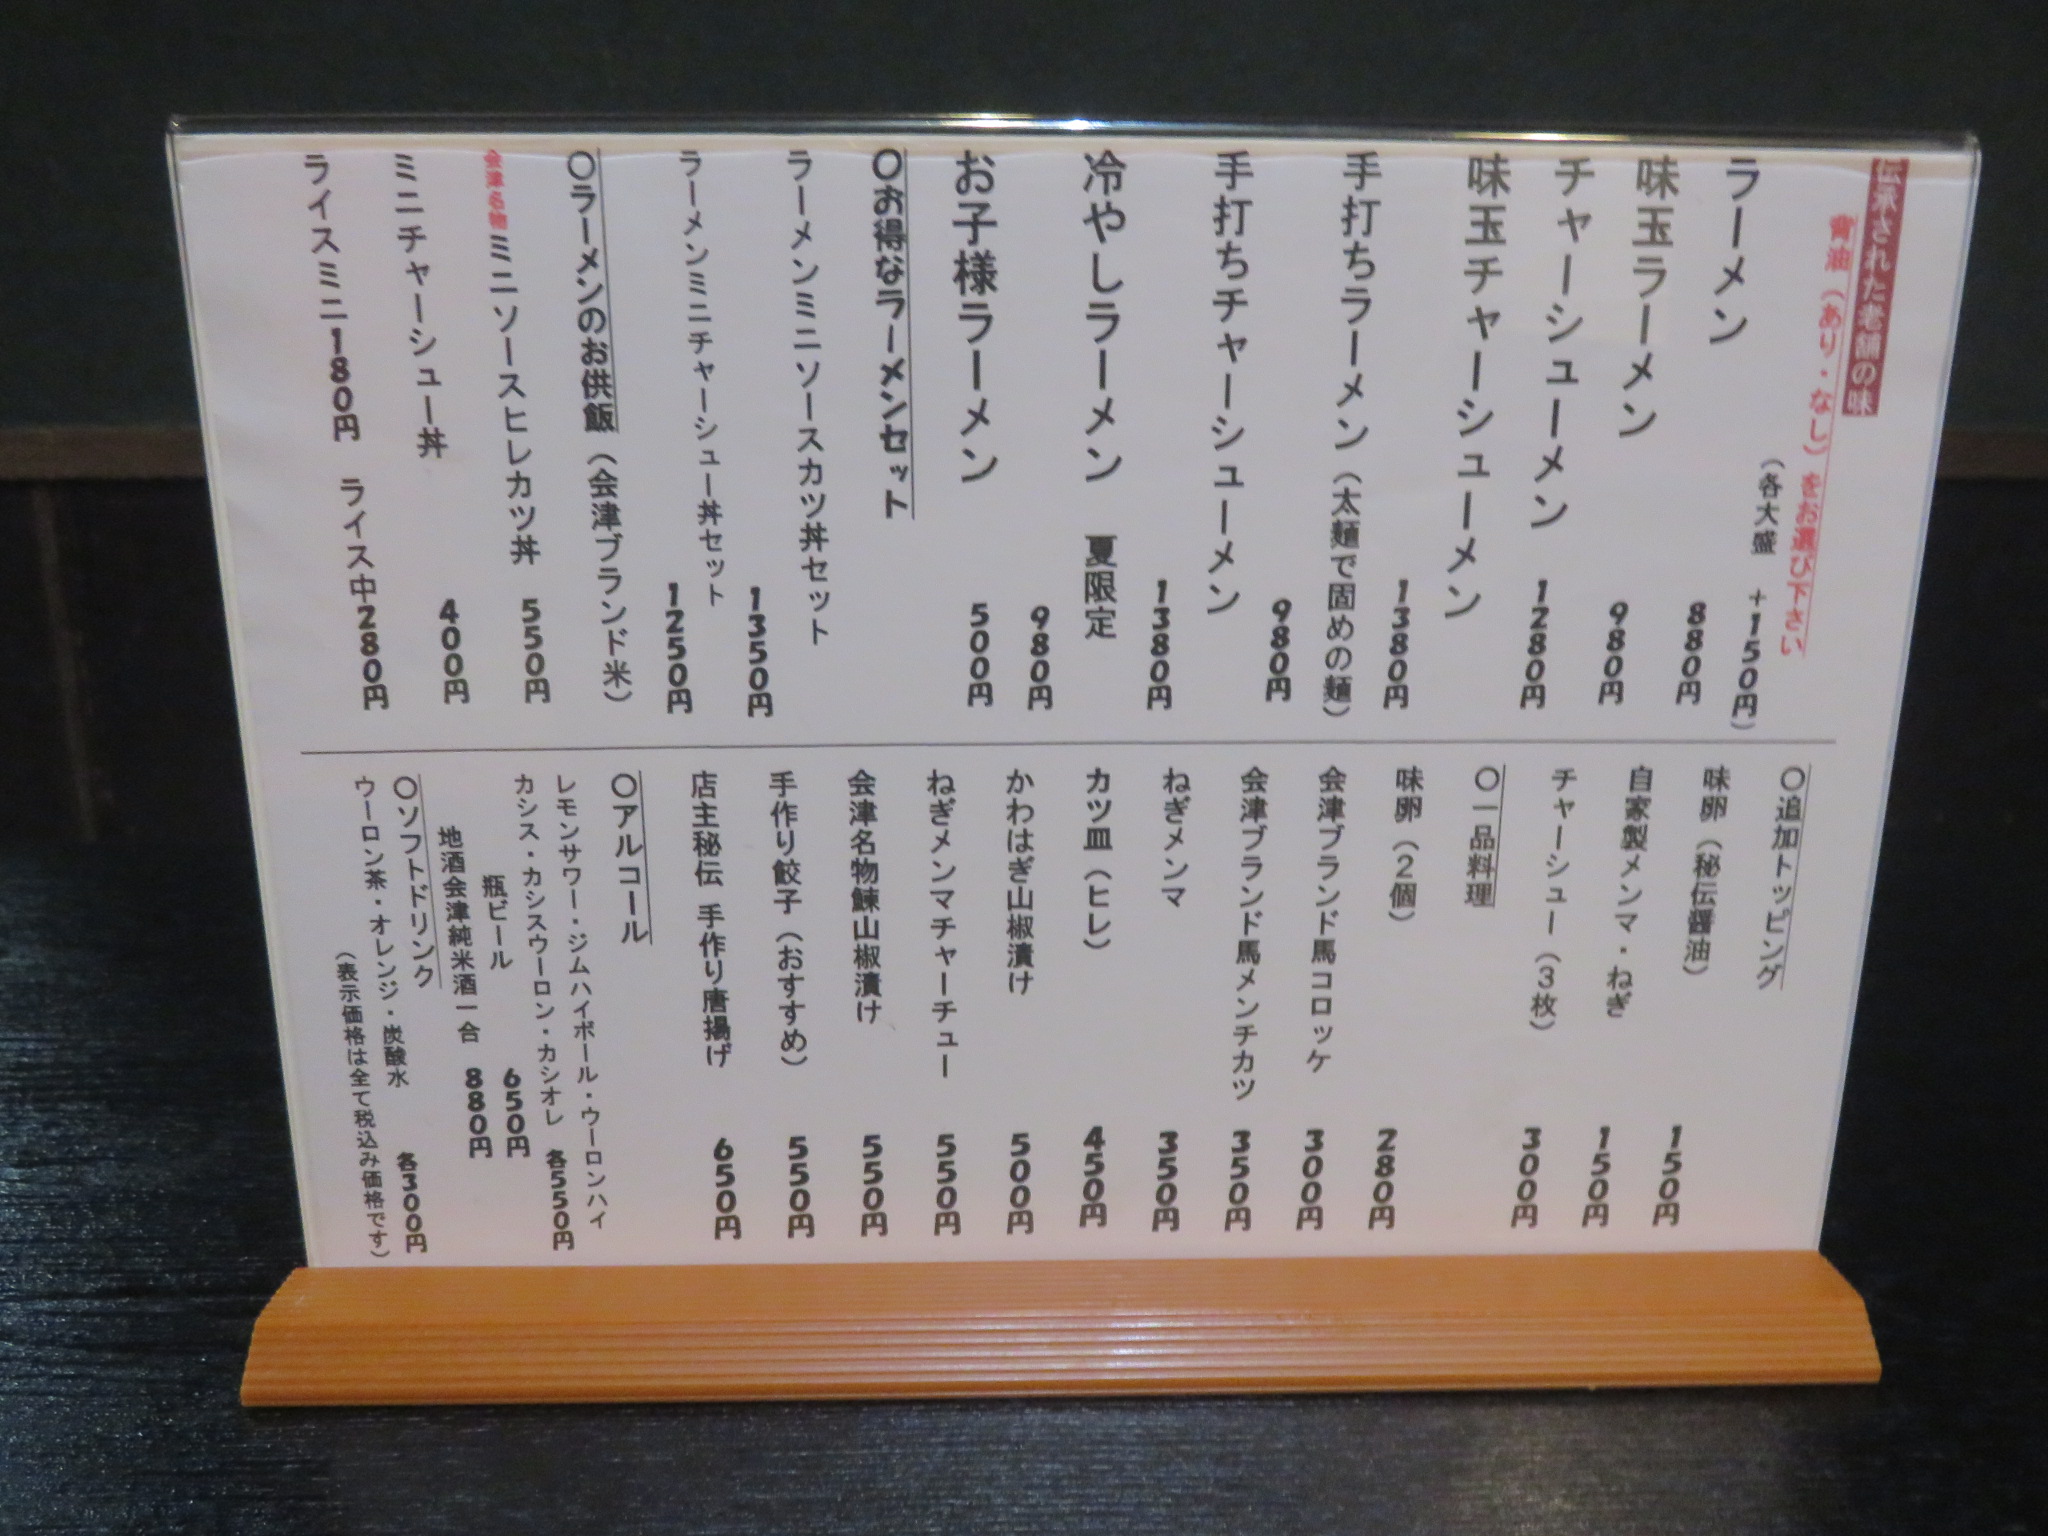 伝承された老舗の味
背油（あり・なし）をお選び下さい
（各大盛 +150円）
ラーメン 880円
味玉ラーメン 980円
チャーシューメン 1280円
味玉チャーシューメン 1380円
手打ちラーメン（太麺で固めの麺） 980円
手打ちチャーシューメン 1380円
冷やしラーメン 夏限定 980円
お子様ラーメン 500円
〇お得なラーメンセット
ラーメンミニソースカツ丼セット 1350円
ラーメンミニチャーシュー丼セット 1250円
〇ラーメンのお供飯（会津ブランド米）
会津名物ミニソースヒレカツ丼 550円
ミニチャーシュー丼 400円
ライスミニ180円 ライス中280円
〇追加トッピング
味卵（秘伝醤油） 150円
自家製メンマ・ねぎ 150円
チャーシュー（3枚） 300円
〇一品料理
味卵（2個） 280円
会津ブランド馬コロッケ 300円
会津ブランド馬メンチカツ 350円
ねぎメンマ 350円
カツ皿（ヒレ） 450円
かわはぎ山椒漬け 500円
ねぎメンマチャーチュー 550円
会津名物鰊山椒漬け 550円
手作り餃子（おすすめ） 550円
店主秘伝 手作り唐揚げ 650円
〇アルコール
レモンサワー・ジムハイボール・ウーロンハイ
カシス・カシスウーロン・カシオレ 各550円
瓶ビール 650円
地酒会津純米酒一合 880円
〇ソフトドリンク
ウーロン茶・オレンジ・炭酸水 各300円
（表示価格は全て税込み価格です）